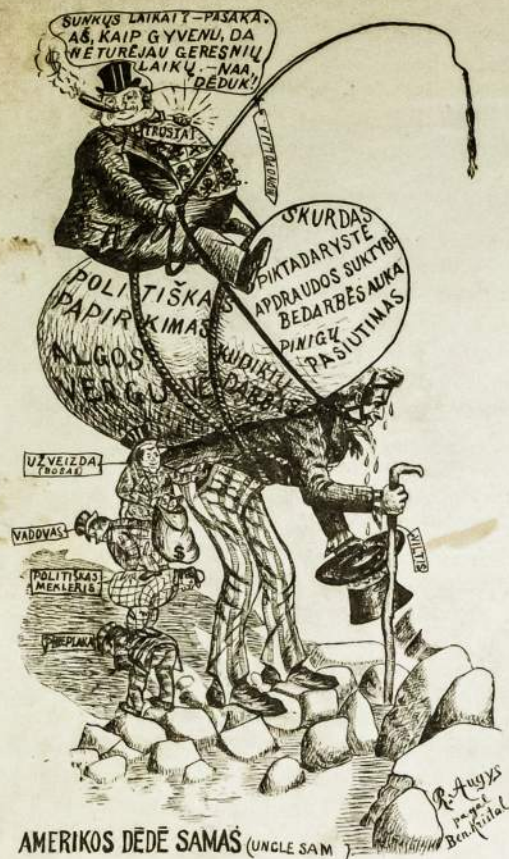 SUNKŲS LAIKAI? – PASAKA.
AŠ, KAIP GYVENU, DA
NETURĖJAU GERESNIŲ
LAIKŲ. – NAA,
DĖDUK!
TROSTAI
MONOPOLIJA
SKURDAS
PIKTADARYSTĖ
APDRAUDOS SUKTYBĖ
BEDARBĖS AUKA
PINIGŲ
PASIUTIMAS
POLITIŠKAS
PAPIRKIMAS
ALGOS
VERGUVĖ
KUDIKIŲ
DARBAS
UŽVEIZDA
(BOSAS)
VADOVAS
POLITIŠKAS
MEKLERIS
VILTIS
$
R. Augys
pagal
Ben. Kristal
AMERIKOS DĖDĖ SAMAS (UNCLE SAM).